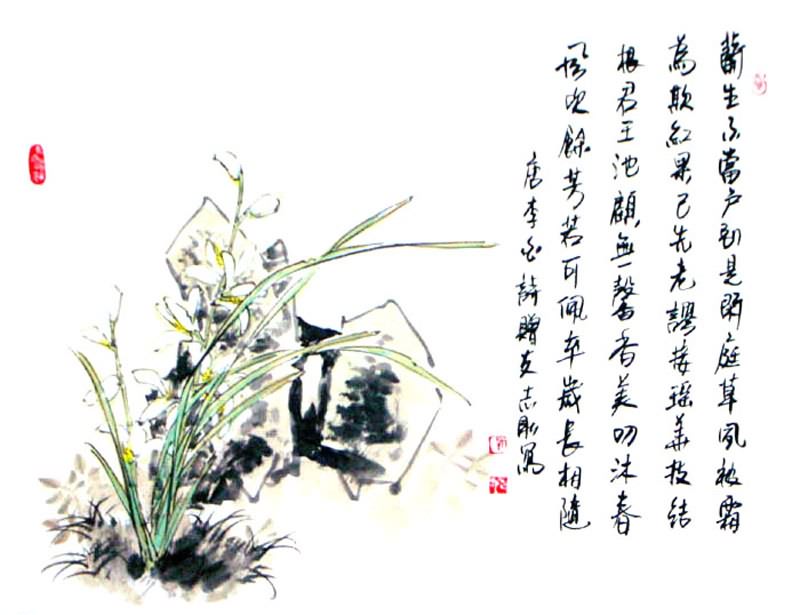 蘭生不當户别是閑庭草夙被霜
為欺紅果已先老謬接瑶華枝結
根君王池顧無馨香美叨沐春
風吹餘芳若可佩卒歲長相隨
唐李白詩贈友志剛寫